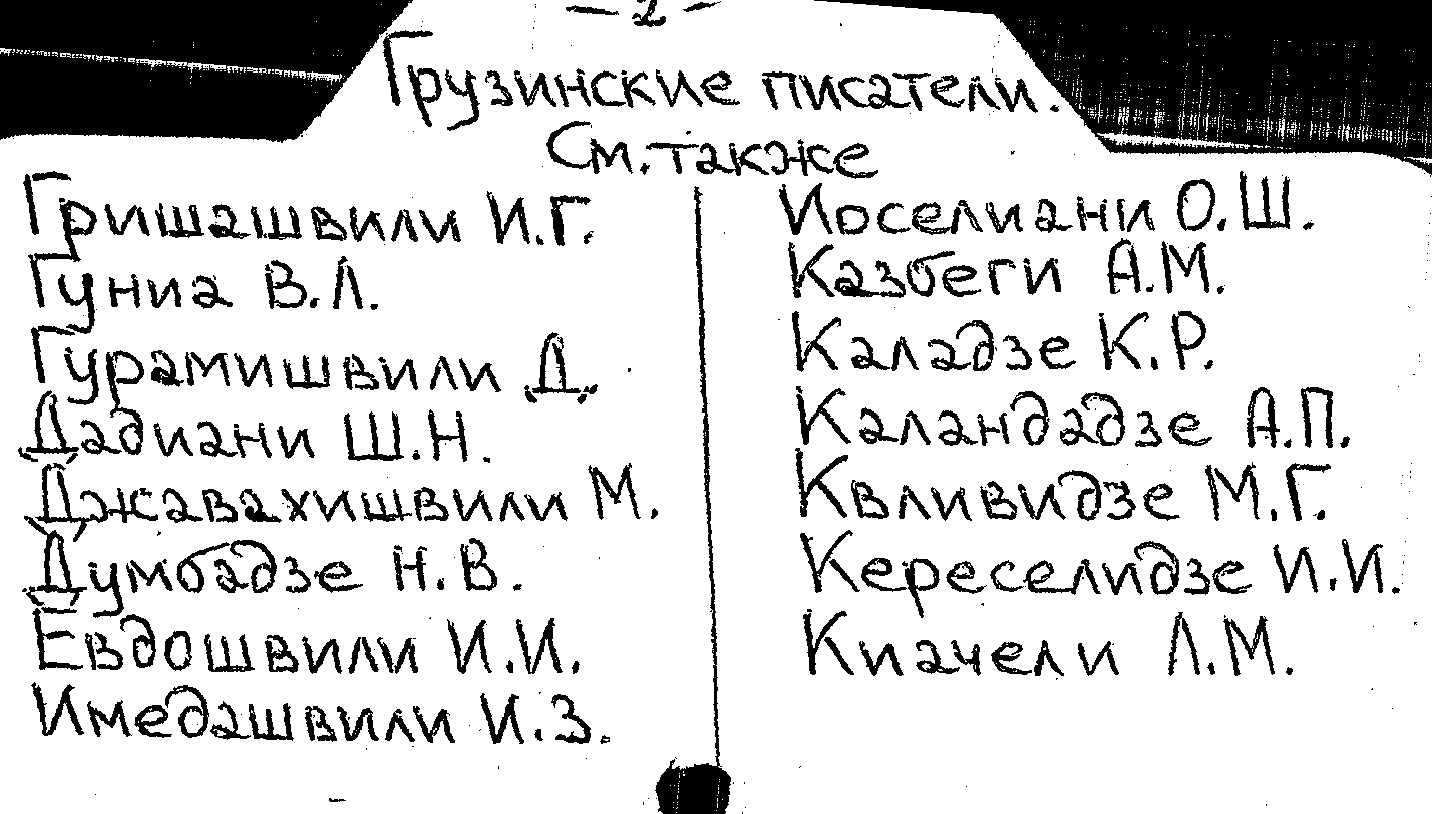 — 2 —
Грузинские писатели.
См. также
Гришашвили И.Г.
Гуниа В.Л.
Гурамишвили Д.
Дадиани Ш.Н.
Джавахишвили М.
Думбадзе Н.В.
Евдошвили И.И.
Имедашвили И.З.
Иоселиани О.Ш.
Казбеги А.М.
Каладзе К.Р.
Каландадзе А.П.
Квливидзе М.Г.
Кереселидзе И.И.
Киачели Л.М.